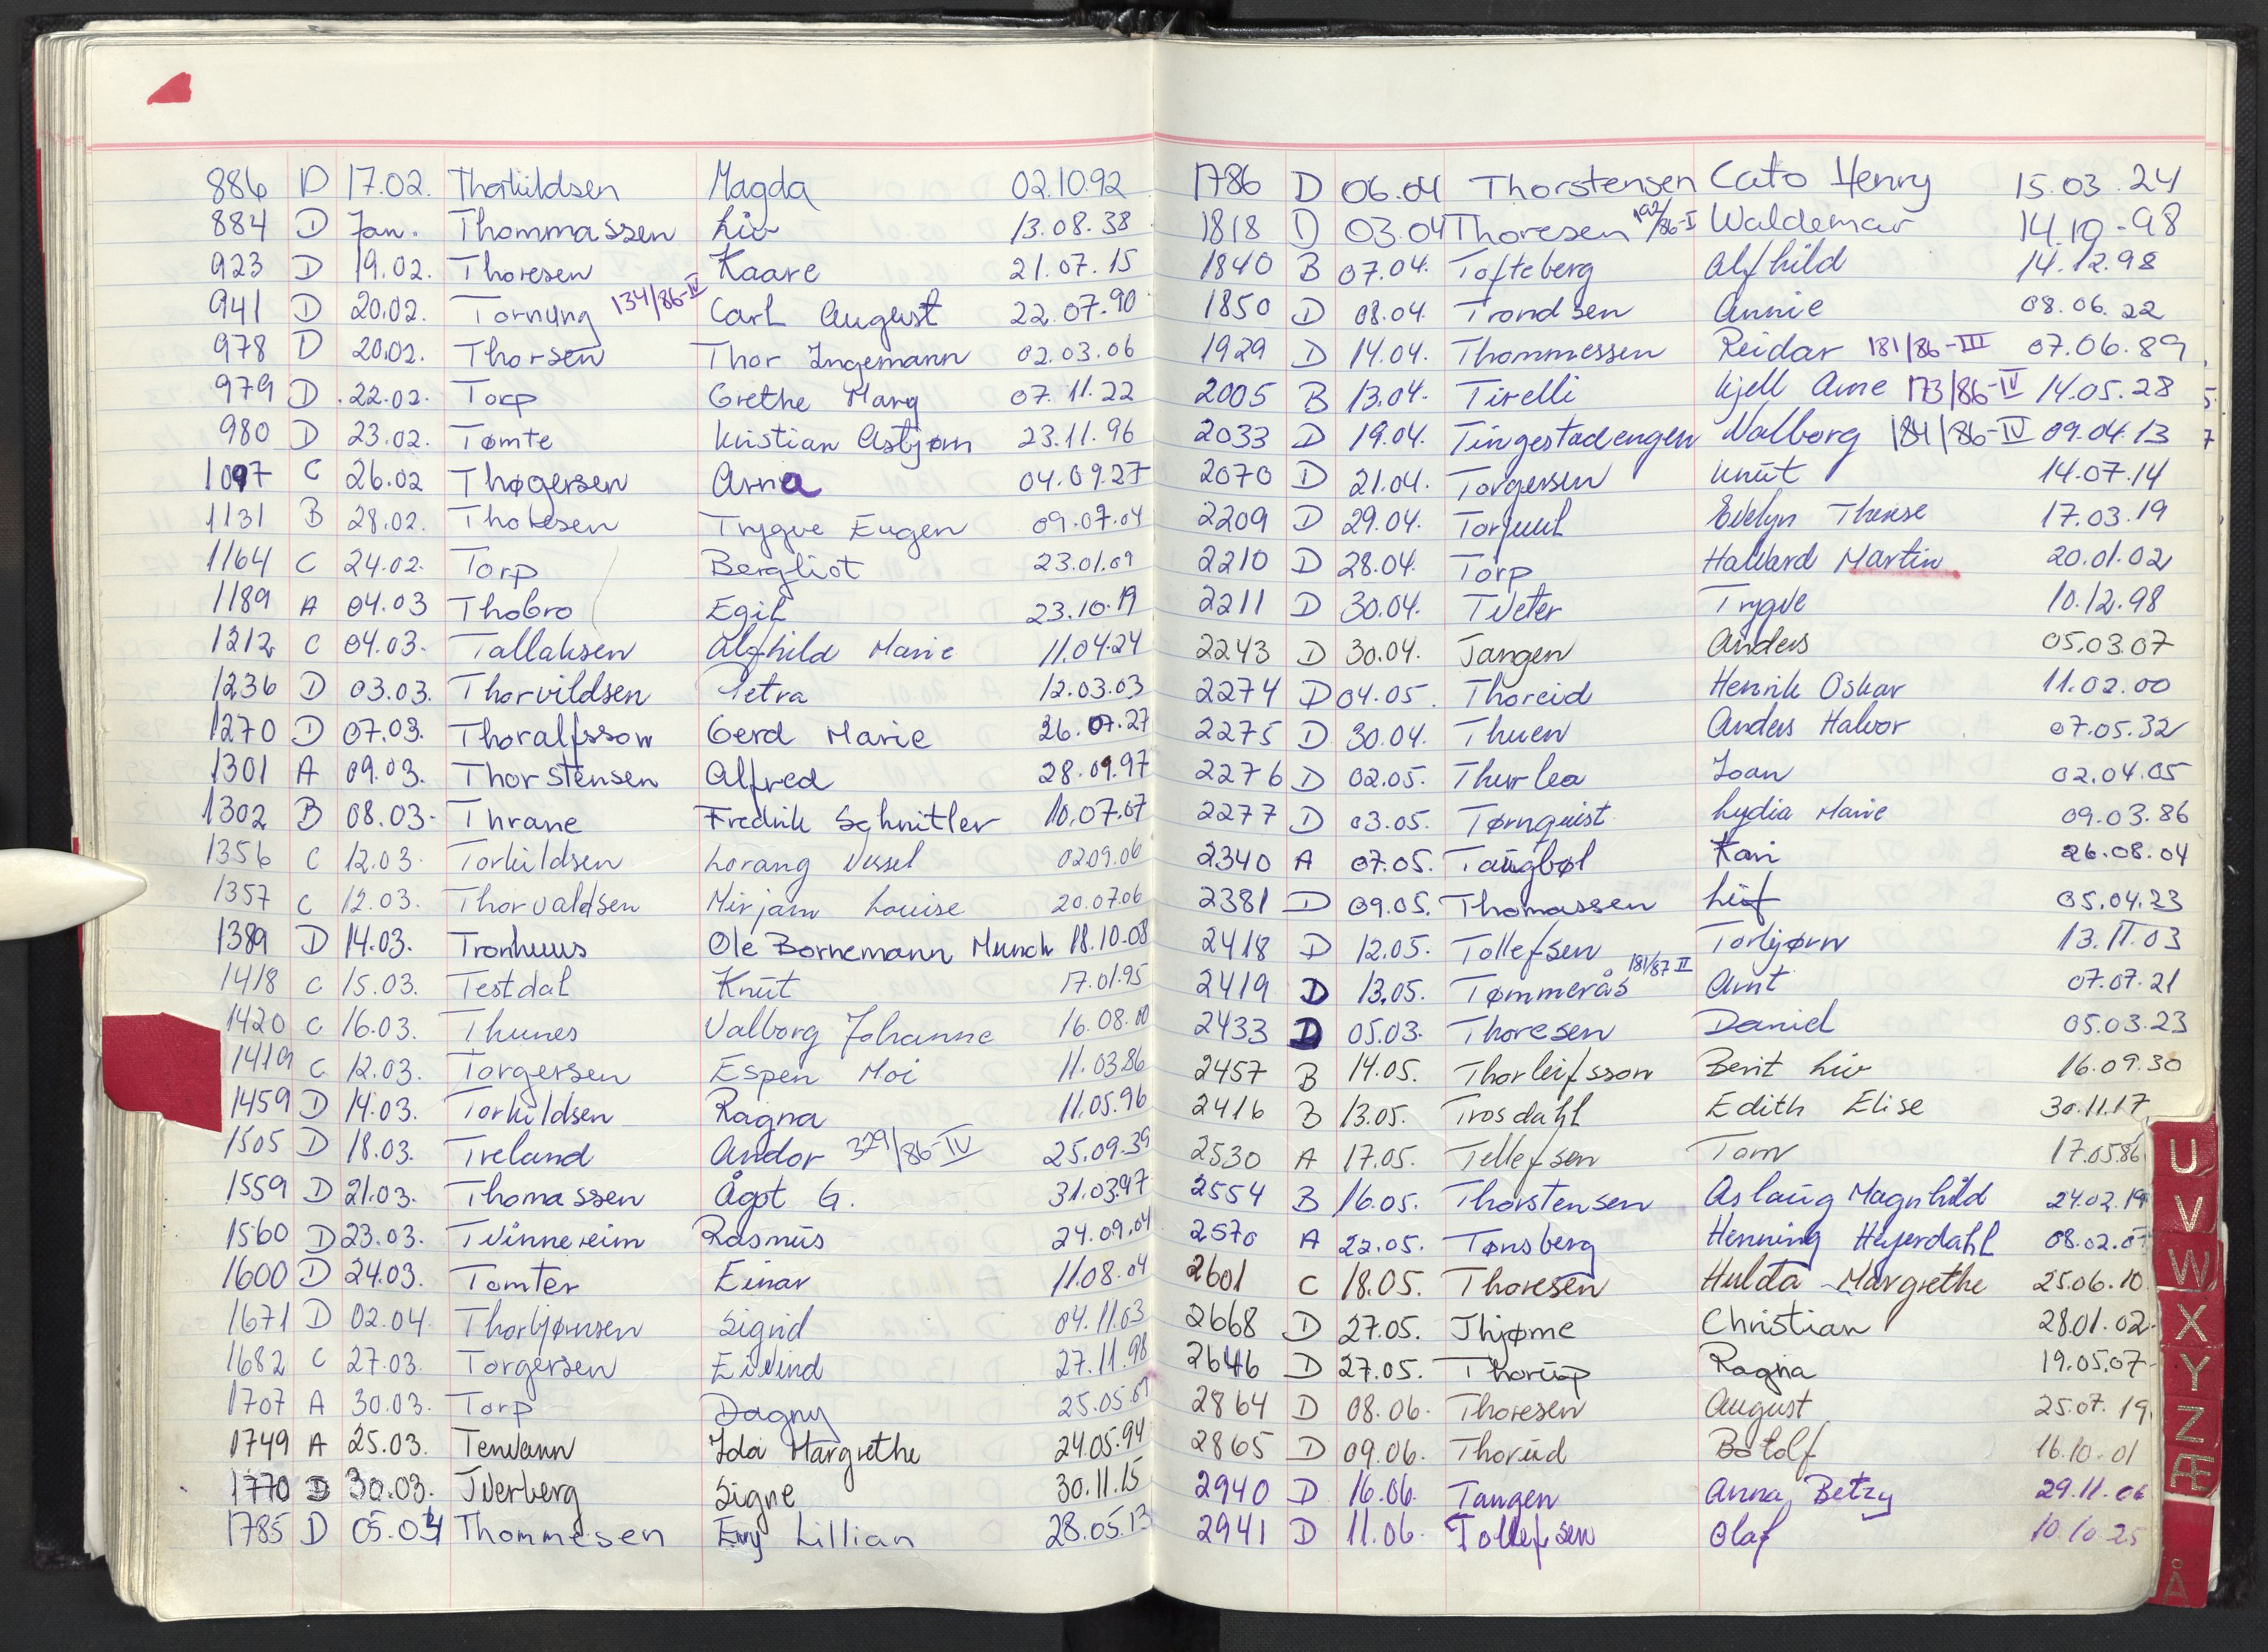 886 D 17.02. Thorkildsen Magda 02.10.92
884 D Jan. Thommassen Liv 13.08.38
923 D 19.02. Thoresen Kaare 21.07.15
941 D 20.02. Tornung 134/86-IV Carl August 22.07.90
978 D 20.02. Thorsen Thor Ingemann 02.03.06
979 D 22.02. Torp Grethe Mary 07.11.22
980 D 23.02. Tømte Kristian Asbjørn 23.11.96
1097 C 26.02 Thøgersen Arna 04.09.27
1131 B 28.02. Thoresen Trygve Eugen 09.07.04
1164 C 24.02. Torp Bergliot 23.01.09
1189 A 04.03 Thobro Egil 23.10.19
1212 C 04.03. Tallaksen Alfhild Marie 11.04.24
1236 D 03.03. Thorvildsen Petra 12.03.03
1270 D 07.03. Thoralfsson Gerd Marie 26.07.27
1301 A 09.03. Thorstensen Alfred 28.09.97
1302 B 08.03. Thrane Fredrik Schnitler 10.07.07
1356 C 12.03. Torkildsen Lorang Wessel 02.09.06
1357 C 12.03. Thorvaldsen Mirjam Louise 20.07.06
1389 D 14.03. Tronhuus Ole Bornemann Munch 18.10.08
1418 C 15.03. Testdal Knut 17.01.95
1420 C 16.03. Thunes Valborg Johanne 16.08.00
1419 C 12.03. Torgersen Espen Moi 11.03.86
1459 D 14.03. Torkildsen Ragna 11.05.96
1505 D 18.03. Treland Andor 329/86-IV 25.09.39
1559 D 21.03. Thomassen Ågot G. 31.03.97
1560 D 23.03. Tvinnereim Rasmus 24.09.04
1600 D 24.03. Tomter Einar 11.08.04
1671 D 02.04. Thorbjørnsen Sigrid 04.11.03
1682 C 27.03. Torgersen Eivind 27.11.98
1707 A 30.03. Torp Dagny 25.05.07
1749 A 25.03. Tenvann Ida Margrethe 24.05.94
1770 D 30.03. Tverberg Signe 30.11.15
1785 D 05.04 Thommesen Evy Lillian 28.05.13
1786 D 06.04 Thorstensen Cato Henry 15.03.24
1818 D 03.04 Thoresen 192/86-I Waldemar 14.10.-98
1840 B 07.04. Tofteberg Alfhild 14.12.98
1850 D 08.04. Trondsen Annie 08.06.22
1929 D 14.04. Thommessen Reidar 181/86-III 07.06.89
2005 B 13.04. Tirelli Kjell Arne 173/86-IV 14.05.28
2033 D 19.04. Tingestadengen Valborg 184/86-IV 09.04.13
2070 D 21.04. Torgersen Knut 14.07.14
2209 D 29.04. Torjuul Evelyn Therese 17.03.19
2210 D 28.04. Torp Hallvard Martin 20.01.02
2211 D 30.04. Tveter Trygve 10.12.98
2243 D 30.04. Tangen Anders 05.03.07
2274 D 04.05. Thoreid Henrik Oskar 11.02.00
2275 D 30.04. Thuen Anders Halvor 07.05.32
2276 D 02.05. Thurlea Joan 02.04.05
2277 D 03.05. Tørnquist Lydia Marie 09.03.86
2340 A 07.05. Taugbøl Kari 26.08.04
2381 D 09.05. Thomassen Leif 05.04.23
2418 D 12.05. Tollefsen Torbjørn 13.11.03
2419 D 13.05. Tømmerås 181/87 II Arnt 07.07.21
2433 D 05.03. Thoresen Daniel 05.03.23
2457 B 14.05. Thorleifsson Berit Liv 16.09.30
2416 B 13.05. Trosdahl Edith Elise 30.11.17
2530 A 17.05. Tellefsen Tom 17.05.86
2554 B 16.05. Thorstensen Aslaug Magnhild 24.02.19
2570 A 22.05. Tønsberg Henning Heyerdahl 08.02.
2601 C 18.05. Thoresen Hulda Margrethe 25.06.10
2668 D 27.05. Thjøme Christian 28.01.02
2646 D 27.05. Thorup Ragna 19.05.07
2864 D 08.06. Thoresen August 25.07.19
2865 D 09.06. Thorud Botolf 16.10.01
2940 D 16.06. Tangen Anna Betzy 29.11.06
2941 D 11.06. Tollefsen Olaf 10.10.25
U
V
W
X
Y
Z
Æ
Å